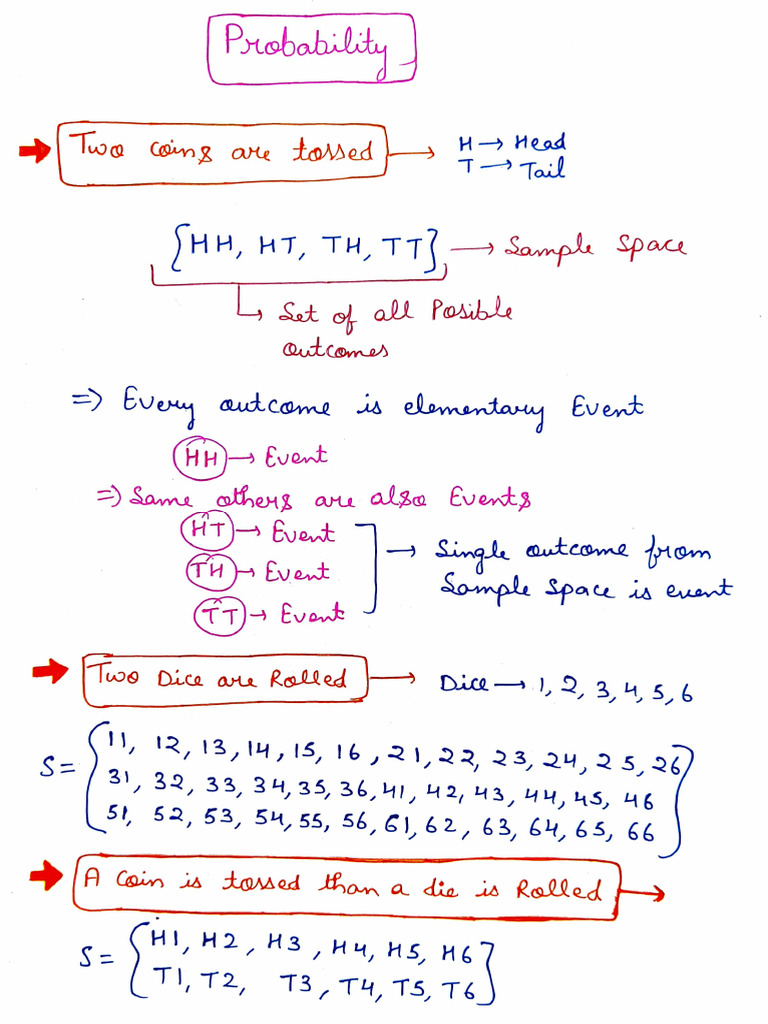 Probability
Two coins are tossed → H → Head
T → Tail
{HH, HT, TH, TT} → Sample Space
↳ Set of all Posible
outcomes
⇒ Every outcome is elementary Event
HH → Event
⇒ Same others are also Events
HT → Event
TH → Event
TT → Event
→ Single outcome from
Sample Space is event
Two Dice are Rolled → Dice → 1, 2, 3, 4, 5, 6
S = {11, 12, 13, 14, 15, 16, 21, 22, 23, 24, 25, 26
31, 32, 33, 34, 35, 36, 41, 42, 43, 44, 45, 46
51, 52, 53, 54, 55, 56, 61, 62, 63, 64, 65, 66}
A coin is tossed than a die is Rolled →
S = {H1, H2, H3, H4, H5, H6
T1, T2, T3, T4, T5, T6}